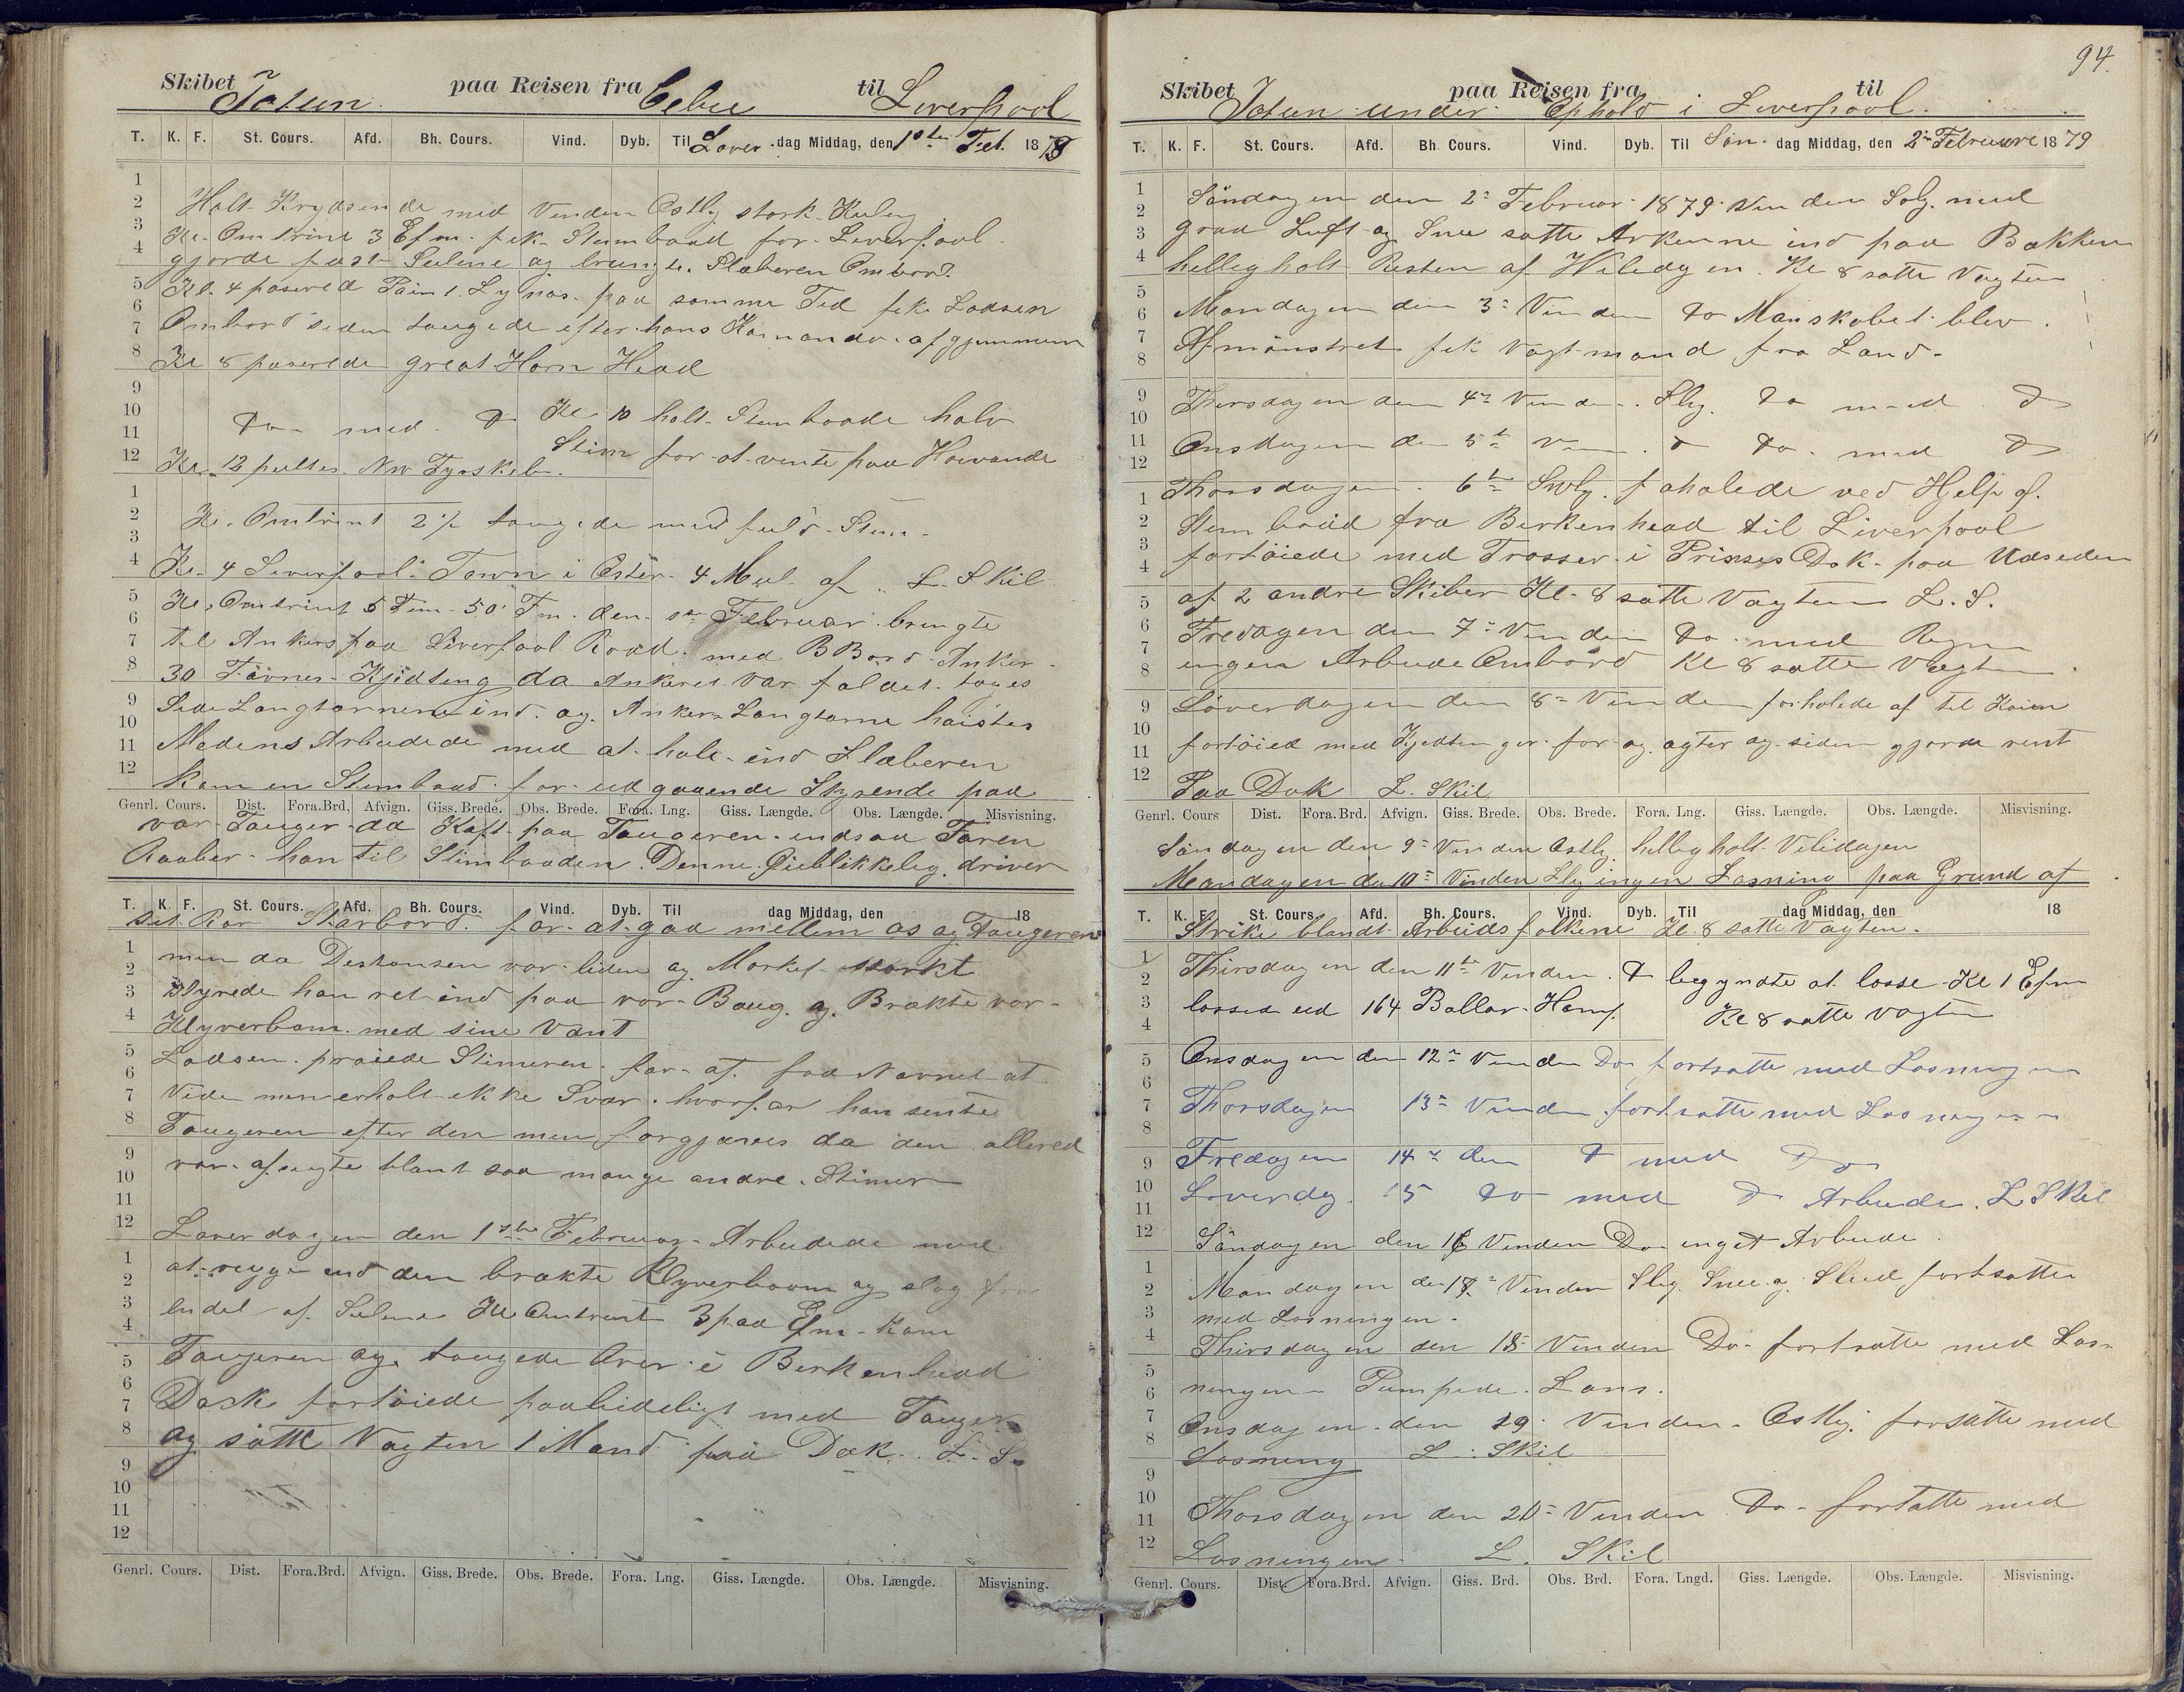 Skibet Jotun paa Reisen fra Cebu til Liverpool
T. K. F. St. Cours. Afd. Bh. Cours. Vind. Dyb. Til Löver dag Middag, den 1ste Feb. 1879
Holt Krydsende med Vinden Ostlig stærk Kuling
Kl. Omtrint 3 Efm. fik Stimbaad for Liverpool
gjorde fast Seilene og bragte Slæberen Ombord.
Kl. 4 pasered Point Lynas paa samme Tid fik Lodsen
Ombord siden taugede efter hans Komando af gjennem
Kl 8 paserede great Horn Head
Do med Do Kl. 10 holt Stimbaade halv
Stim for at vente paa Høivande
Kl. 12 NW Fyrskib.
Kl. Omtrint 2½ taugede med fuld Stim
Kl. 4 Liverpool Town i Öster 4 Miil af L. Skil
Kl. Omtrint 5 Tim 50 Fm. den 1ste Februar bragte
til Ankers paa Liverpool Roed med B Bord Anker
30 Favner Kjædting da Ankeret var faldet toges
Side Langtornene ind og Anker Langtorne haistes
Medens Arbeidede med at hale ind Slæberen
kom en Stimbaad for udgaaende Styrende paa
Genrl. Cours. Dist. Fora.Brd. Afvign. Giss. Brede. Obs. Brede. Fora. Lng. Giss. Længde. Obs. Længde. Misvisning.
vor Tauger da Kapt. paa Taugeren indsaa Faren
Raaber han til Stimbaaden. Denne Öieblikkelig driver
T. K. F. St. Cours. Afd. Bh. Cours. Vind. Dyb. Til dag Middag, den 18
sit Ror Starbord for at gaa mellem os og Taugeren
men da Distansen var liden og Mørket stærkt
Styrede han ret ind paa vor Baug og Brækte vor
Klyverbom med sine Vant
Lodsen praiede Stimeren for at faa Navnet at
vide men erholt ikke Svar hvorfor han sente
Taugeren efter den men forgjæves da den allered
var blant saa mange andre Stimer
Löverdagen den 1ste Februar Arbeidede med
at rigge ind den brækte Klyverboom og slog fra
endel af Seilene Kl Omtrent 3 paa Efm. kom
Taugeren og taugede Over i Berkenhead
Dock fortöiede paalideligt med Tauger
og satte Vagten 1 Mand paa Dæk. L. S.
Genrl. Cours. Dist. Fora.Brd. Afvign. Giss. Brede. Obs. Brede. Fora. Lng. Giss. Længde. Obs. Længde. Misvisning.
94.
Skibet Jotun under paa Reisen fra Ophold i Liverpool til
T. K. F. St. Cours. Afd. Bh. Cours. Vind. Dyb. Til Sön dag Middag, den 2den Februari 1879
Söndagen den 2n Februar 1879 Vinden Solg. med
graa Luft og Snee satte Ankerne ind paa Bakken
hellig holt Resten af Hviledagen. Kl 8 satte Vagten
Mandagen den 3n Vinden Do Manskabet blev
Afmönstret fik Vagtmand fra Land.
Thirsdagen den 4n Vinden Slg. Do med Do
Onsdagen den 5te Vin. Do med Do
Thorsdagen 6te Swlg. forhalede ved Hjelp af
Stimbaad fra Berkenhead til Liverpool
fortöiede med Trosser i Prinses Dok paa Udsiden
af 2 andre Skiber Kl. 8 satte Vagten L. S.
Fredagen den 7n Vinden Do med Regn
ingen Arbeide Ombord Kl 8 satte Vagten
Löverdagen den 8n Vinden forhalede af til Kaien
fortöied med Kjedtinger for og agter og siden gjorde rent
Paa Dæk L. Skil
Genrl. Cours Dist. Fora.Brd. Afvign. Giss. Brede. Obs. Brede. Fora. Lng. Giss. Længde. Obs. Længde. Misvisning.
Söndagen den 9n Vinden Ostlig helligholt Viledagen
Mandagen den 10n Vinden Slg ingen Losning paa Grund af
T. K. F. St. Cours. Afd. Bh. Cours. Vind. Dyb. Til dag Middag, den 18
Strike blandt Arbeidsfolkene Kl. 8 satte Vagten.
Thirsdagen den 11te Vinden Do begyndte at losse Kl 1 Efm
lossed ud 164 Ballar Hamp. Kl 8 satte vagten
Onsdagen den 12n Vinden Do fortsatte med Losningen
Thorsdagen 13n Vinden fortsatte med Losningen
Fredagen 14n den Do med Do
Löverdag. 15 Do med Do Arbeide. L Skil
Söndagen den 16 Vinden Do inget Arbeide
Mandagen den 17n Vinden Slg. Snee og Slud fortsatte
med Losningen.
Thirsdagen den 18 Vinden Do fortsatte med Los-
ningen Pumpede Lens.
Onsdagen den 19 Vinden Ostlig. forsatte med
Losning L. Skil
Thorsdagen den 20n Vinden Do fortatte med
Losningen L. Skil
Genrl. Cours. Dist. Fora.Brd. Afvign. Giss. Brd. Obs. Brd. Fora. Lngd. Giss. Længde. Obs. Længde. Misvisning.